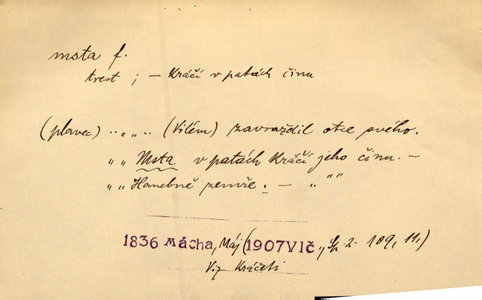 msta f.
trest ; – Kráčí v patách činu
(plavec) „ „ „ (Vilém) zavraždil otce svého.
„ „ Msta v patách kráčí jeho činu. –
„ „ Hanebně zemře. – „ " "
1836 Mácha, Máj (1907 Vlč., 2. 109, 11.)
Viz kráčeti